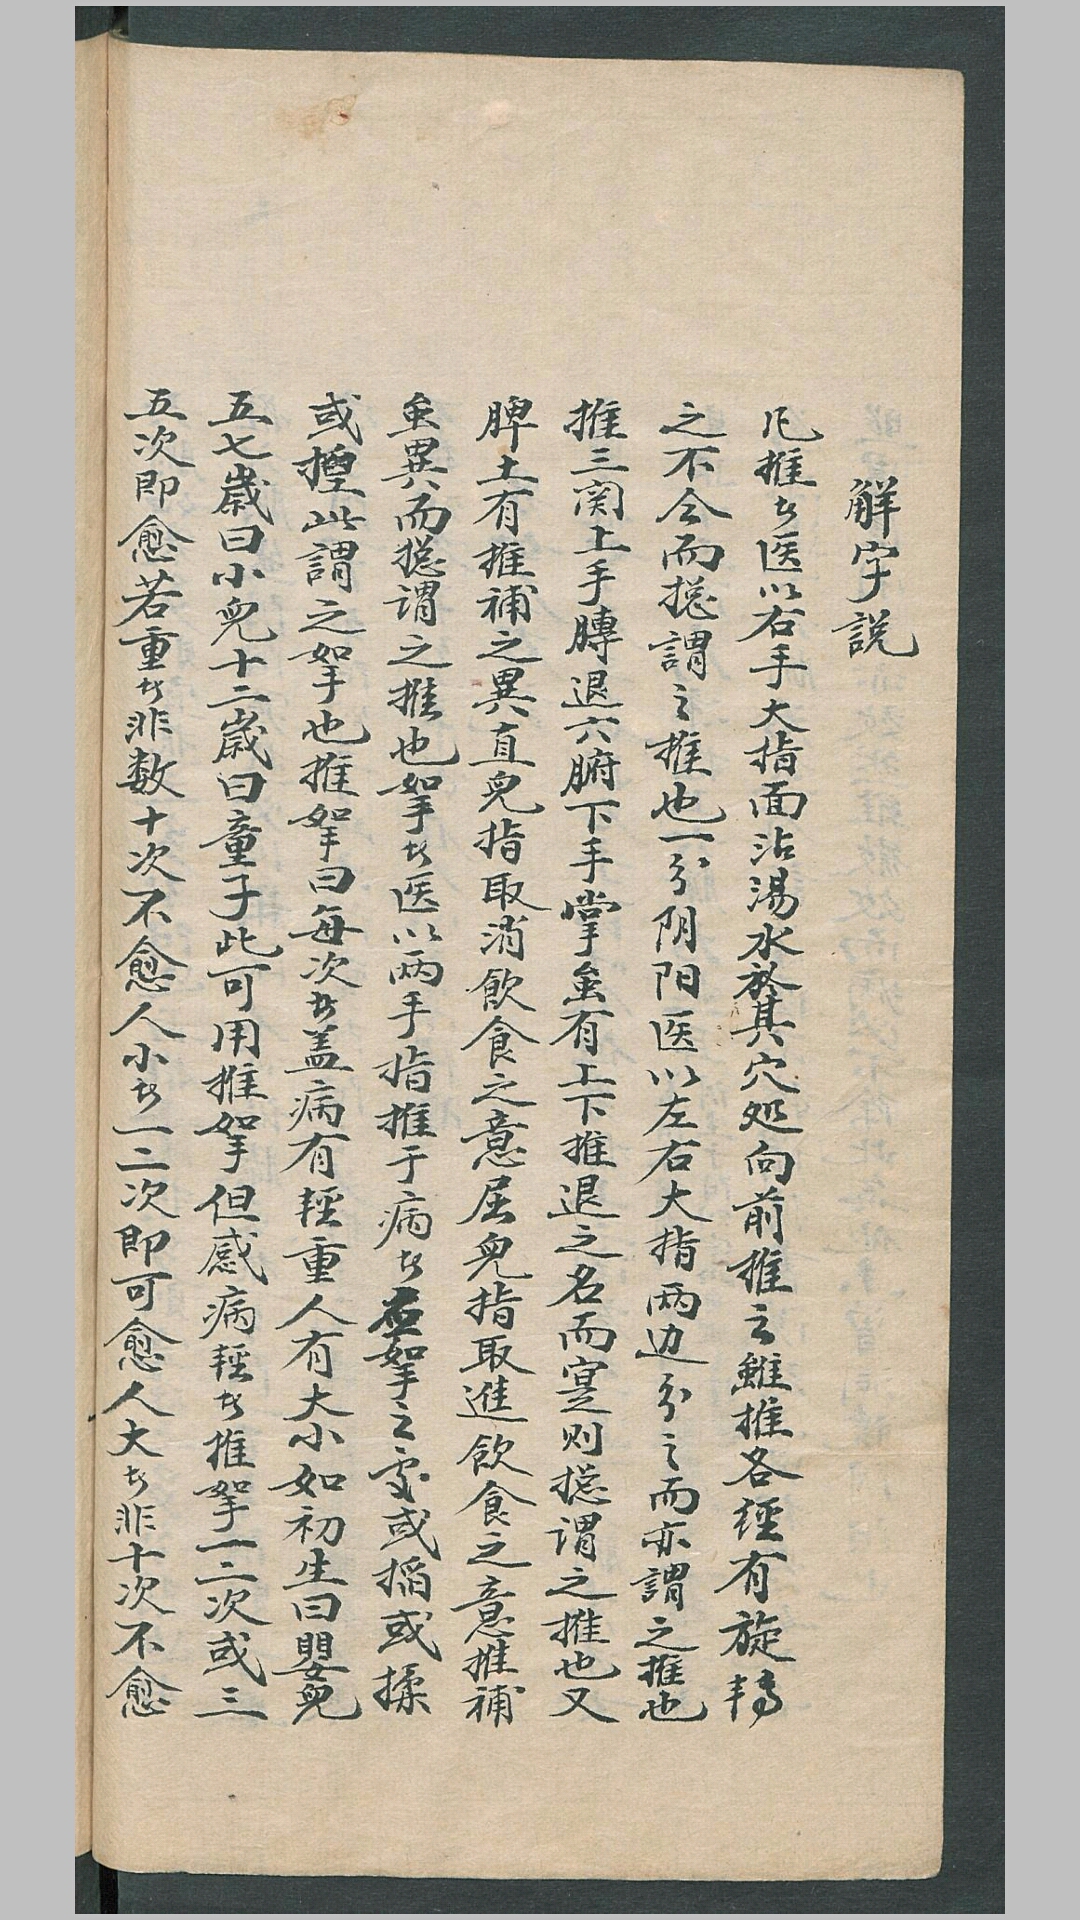 解字説
凡推者医以右手大指面沾湯水於其穴処向前推之雖推各經有旋轉
之不仝而摠謂之推也一分阴阳医以左右大指两边分之而亦謂之推也
推三関上手膊退六腑下手掌虽有上下推退之名而寔则摠谓之推也又
脾土有推補之異直児指取消飲食之意屈児指取進飲食之意推補
虽異而摠谓之推也拏者医以两手指推于病者右拏之処或掐或揉
或揑此謂之拏也推拏曰每次者盖病有輕重人有大小如初生曰嬰児
五七歲曰小児十二歲曰童子此可用推拏但感病輕者推拏一二次或三
五次即愈若重者非数十次不愈人小者一二次即可愈人大者非十次不愈